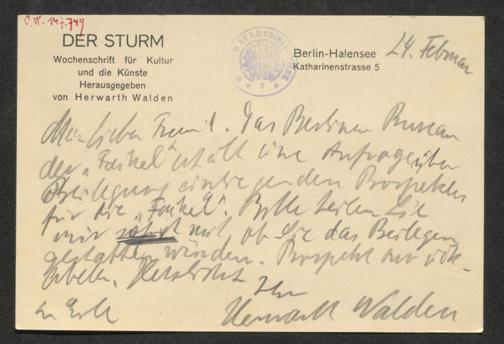 DER STURM
Wochenschrift für Kultur
und die Künste
Herausgegeben
von Herwarth Walden
Berlin-Halensee
Katharinenstrasse 5
24. Februar
Mein lieber Freund. Das Berliner Bureau
der „Fackel" erhält eine Anfrage über
Beilegung eines Prospektes
für die „Fackel". Bitte teilen Sie
mir sofort mit ob Sie das Beilegen
gestatten würden. Prospekt
Herzlichst
Ihr
Herwarth Walden